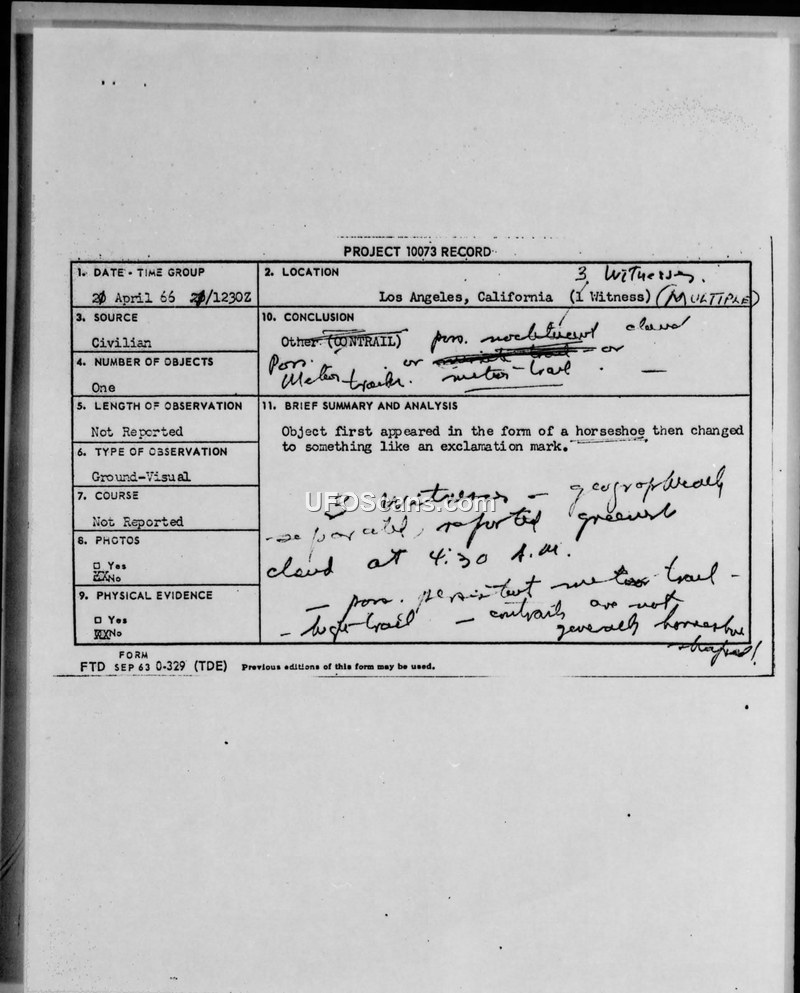 PROJECT 10073 RECORD
1. DATE - TIME GROUP
April 66 /1230Z
2. LOCATION
3 Witnesses.
Los Angeles, California (1 Witness) (MULTIPLE)
3. SOURCE
Civilian
10. CONCLUSION
Other (CONTRAIL) poss. noctilucent cloud
Poss. or or
Meteor meteor-trail.
4. NUMBER OF OBJECTS
One
5. LENGTH OF OBSERVATION
Not Reported
11. BRIEF SUMMARY AND ANALYSIS
Object first appeared in the form of a horseshoe then changed
to something like an exclamation mark.
6. TYPE OF OBSERVATION
Ground-Visual
3 witnesses - geographically
separated, reported greenish
cloud at 4:30 A.M.
- poss. persistent meteor trail -
- contrails are not
generally horseshoe
shaped!
7. COURSE
Not Reported
8. PHOTOS
□ Yes
XX No
9. PHYSICAL EVIDENCE
□ Yes
XX No
FORM
FTD SEP 63 0-329 (TDE) Previous editions of this form may be used.
UFOScans.com